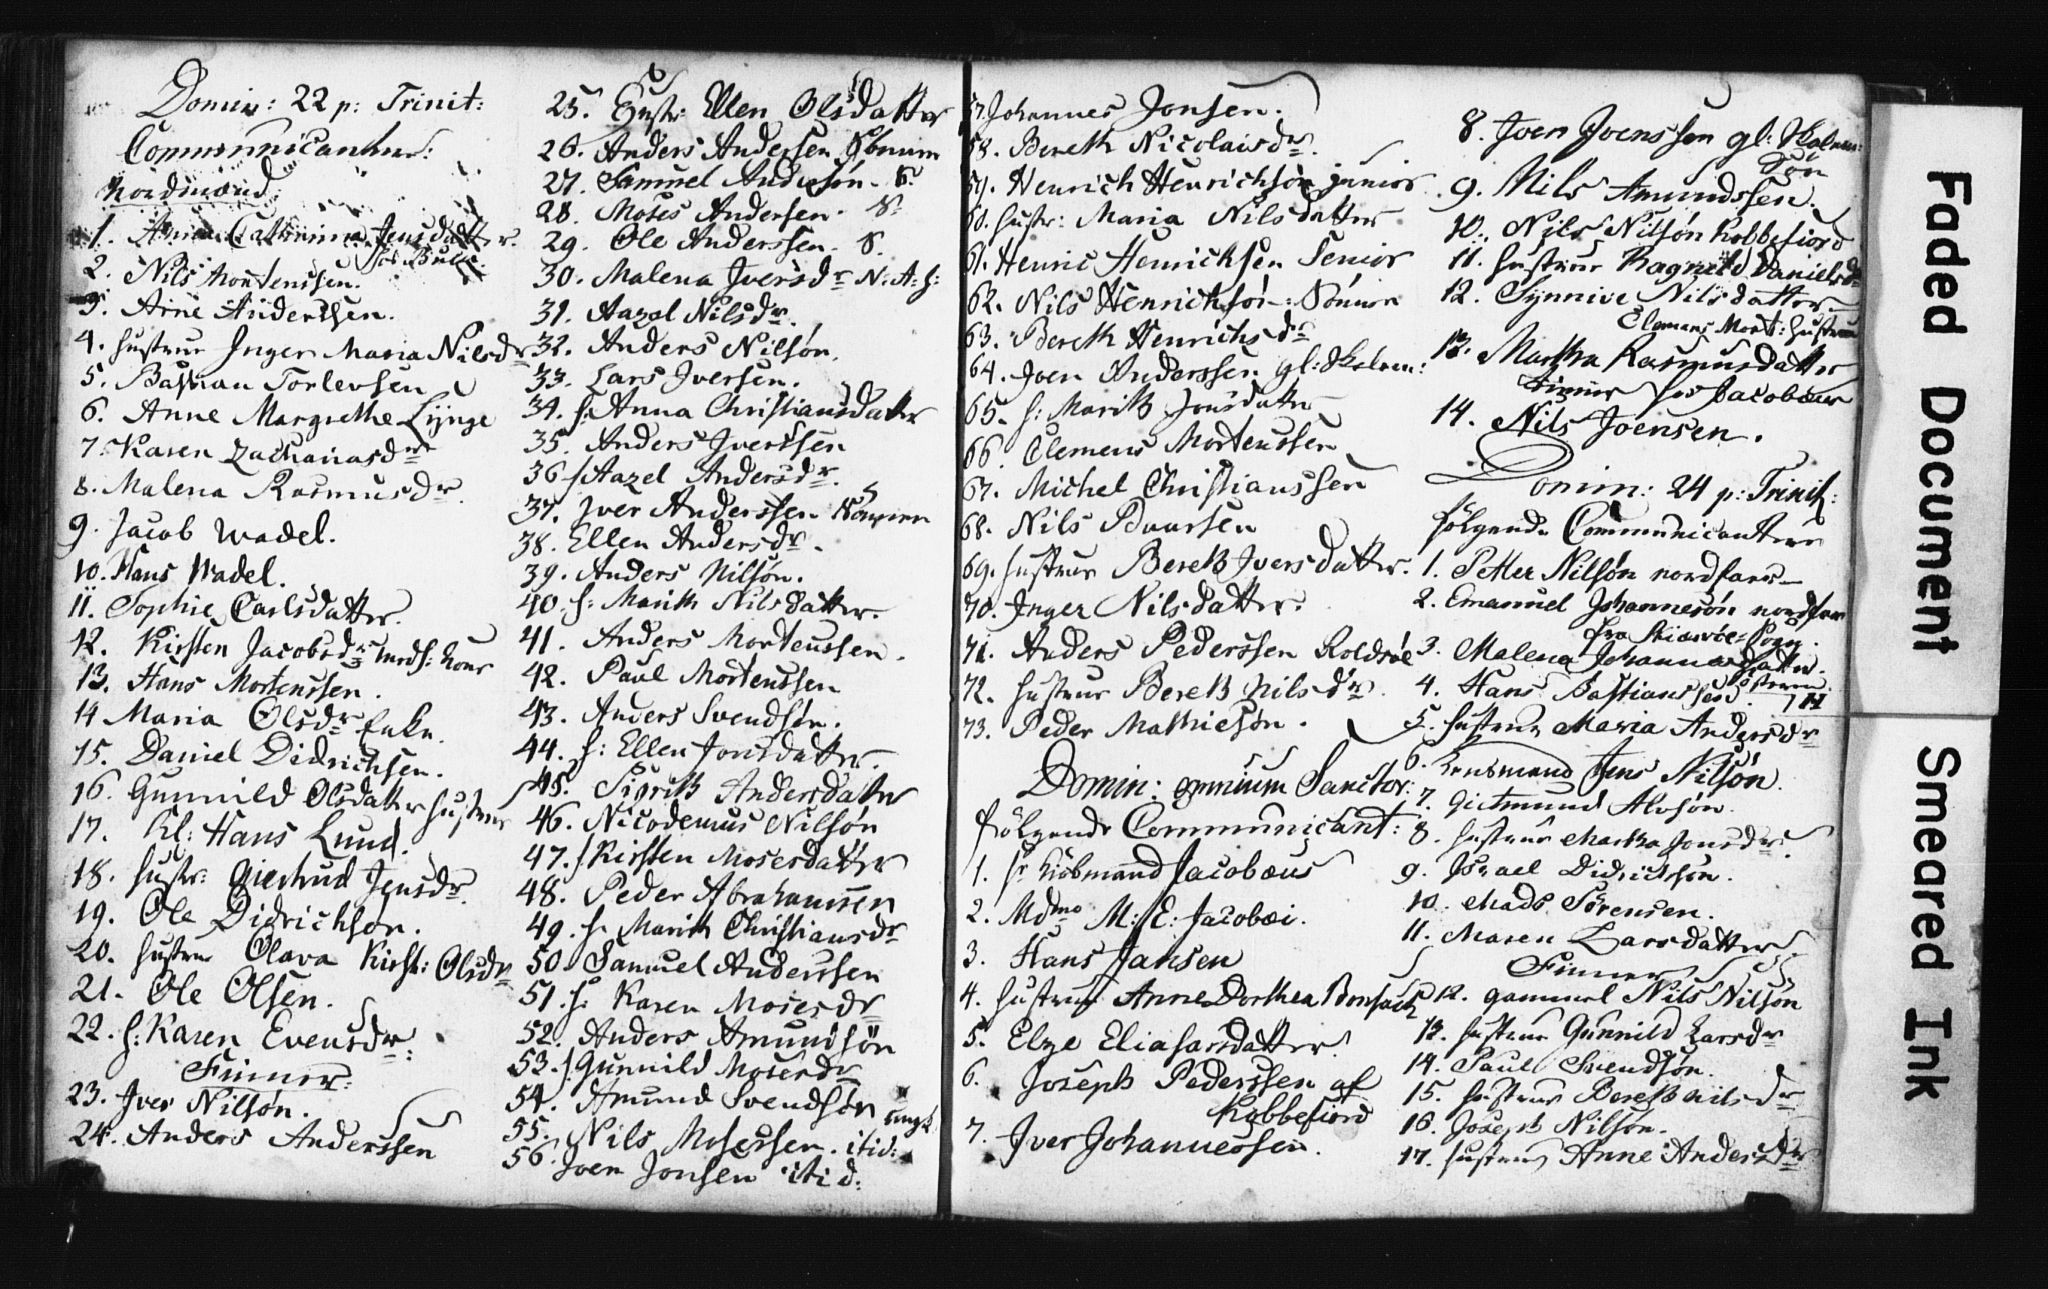 Domin: 22 p: Trinit:
Communicanter:
Nordmænd
1. Anna Cathrinna Jensdatter
hos Bull
2. Nils Mortenssen.
3. Arne Anderssen.
4. hustrue Inger Maria Nilsdr
5. Bastian Torlevsen
6. Anne Margrethe Lynge
7. Karen Zachariasdr
8. Malena Rasmusdr
9. Jacob Wadel.
10. Hans Wadel.
11. Sophie Carlsdatter.
12. Kirsten Jacobsdr
13. Hans Mortenssen.
14 Maria Olsdr Enke
15. Daniel Didrichsen.
16. Gunnild Olsdatter hustrue
17. Kl: Hans Lund.
18. hustr: Giertrud Jensdr
19. Ole Didrichson.
20. hustrue Olava Kirst: Olsdr
21. Ole Olsen.
22. h: Karen Evensdr:
Finner:
23. Iver Nilsøn.
24. Anders Anderssen
25. Hustr: Ellen Olsdatter
26. Anders Andersen
27. Samuel Andersøn. S.
28. Moses Andersen. S.
29. Ole Anderssen. S.
30. Malena Iversdr N: A: h:
31. Aazel Nilsdr.
32. Anders Nilsøn.
33. Lars Iversen.
34. h: Anna Christiansdatter
35. Anders Iverssen
36 h Aazel Andersdr.
37. Iver Anderssen
38. Ellen Andersdr.
39. Anders Nilsøn.
40. h: Marith Nilsdatter.
41. Anders Mortenssen.
42. Paul Mortenssen
43. Anders Svendsøn.
44. h: Ellen Jonsdatter.
45. Sigrith Andersdatter
46. Nicodemus Nilsøn
47. h Kirsten Mosesdatter
48. Peder Abrahamsen
49. h Marith Christiansdr
50. Samuel Anderssen
51. h: Karen Mosesdr
52. Anders Amundsøn
53. h: Gunnild Mosesdr
54. Amund Svendsøn ungk.
55. Nils Mosessen. itid:
56. Joen Jonsen itid:
57. Johannes Jonsen.
58. Bereth Nicolaisdr.
59. Henrich Henrichsøn junior
60. hustr: Maria Nilsdatter
61. Henric Henricksen Senior
62. Nils Henrichsøn:
63. Bereth Henrichsdr
64. Joen Anderssen gl: Skolem:
65. h: Marith Jonsdatter
66. Clemens Mortenssen
67. Michel Christianssen
68. Nils Baarsen
69. hustrue Bereth Iversdatter.
70. Inger Nilsdatter.
71. Anders Pederssen Roldsøe
72. hustrue Bereth Nilsdr
73. Peder Mathiesøn.
Domin: omnium Sanctor:
følgende Communicant:
1. hr Kiøbmand Jacobæus
2. Mdme M: E: Jacobæi.
3. Hans Jansen
4. hustrue Anne Dorthea Bonsach
5. Elze Eliasarsdatter.
6. Joseph Pederssen af
Kobbefiord
7. Iver Johannessen.
8. Joen Joenssen gl: Skolem:
Søn
9. Nils Amundssen.
10. Nils Nilsøn Kobbefiord
11. hustrue Ragnild Danielsdr
12. Synnive Nilsdatter
Clemens Mort: hustrue
13. Martha Rasmusdatter
tienner hos Jacobæus
14. Nils Joensen.
Domin: 24 p: Trinit:
følgende Communicantere
1. Petter Nilsøn nordfarer
2. Emanuel Johannesøn nordfar
fra Skiærvøe-Sogn.
3. Malena Johannesdatter.
4. Hans Bastianssen.
5. hustrue Maria Andersdr
6. Lensmand Jens Nilsøn.
7. Gietmund Alvsøn.
8. hustrue Martha Jonsdr.
9. Israel Didrichsøn.
10. Mads Sørensen.
11. Maren Larsdatter
Finner
12. gammel Nils Nilsøn
13. hustrue Gunnild Larsdr
14. Paul Svendsøn.
15. hustrue Bereth Nilsdr
16. Joseph Nilsøn.
17. hustrue Anne Andersdr
Faded Document
Smeared Ink